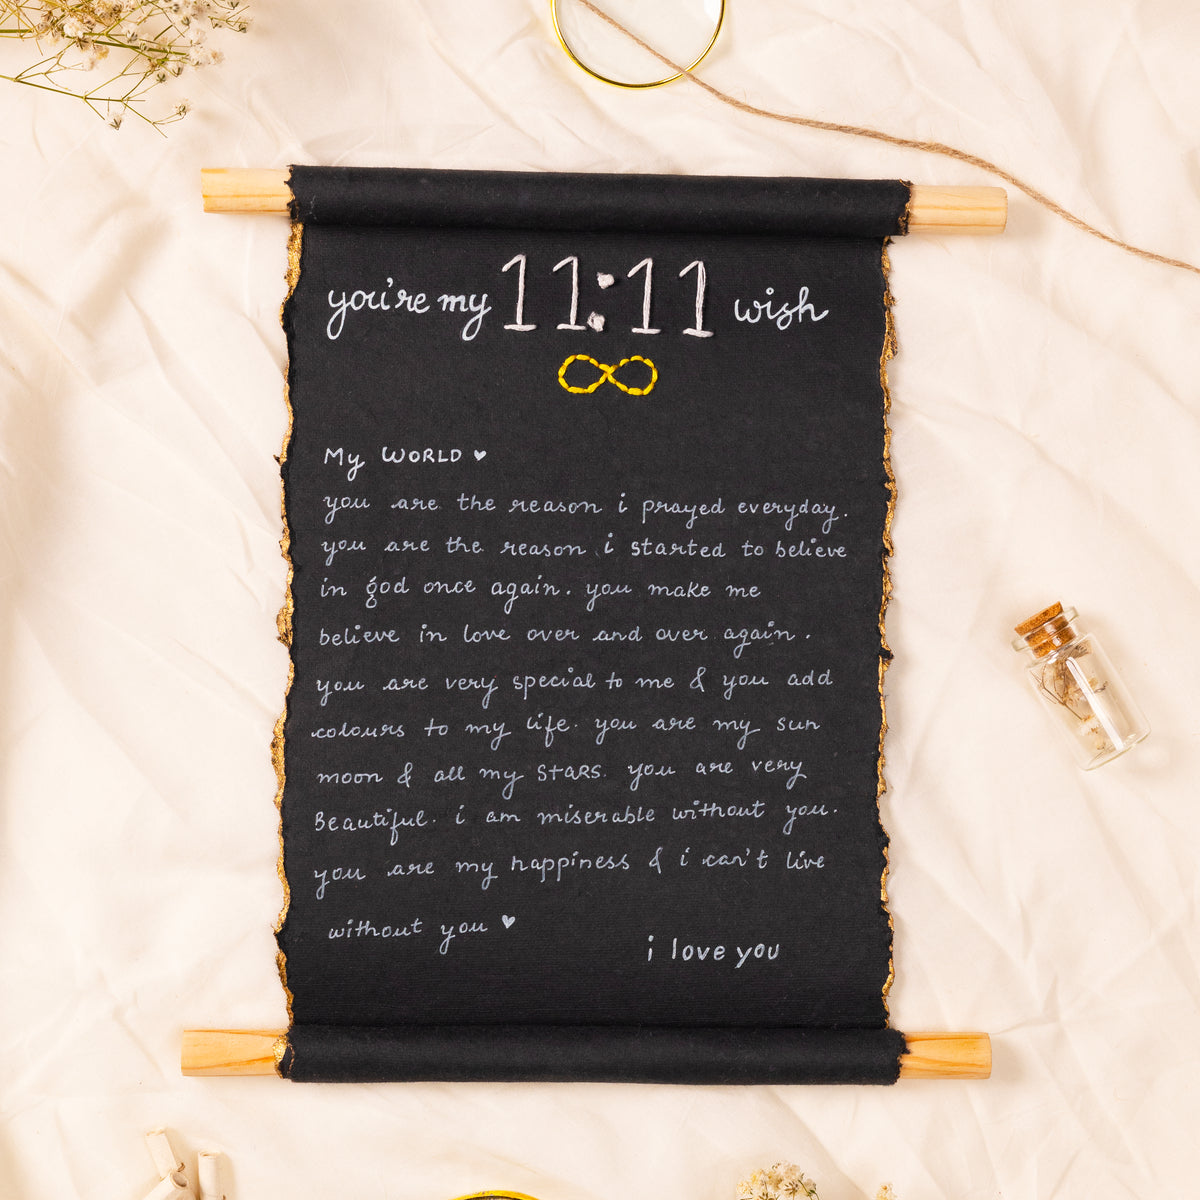 you're my 11:11 wish
My WORLD ♥
you are the reason i prayed everyday.
you are the reason i started to believe
in god once again. you make me
believe in love over and over again.
you are very special to me & you add
colours to my life. you are my sun
moon & all my STARS. you are very
Beautiful. i am miserable without you.
you are my happiness & i can't live
without you ♥
i love you